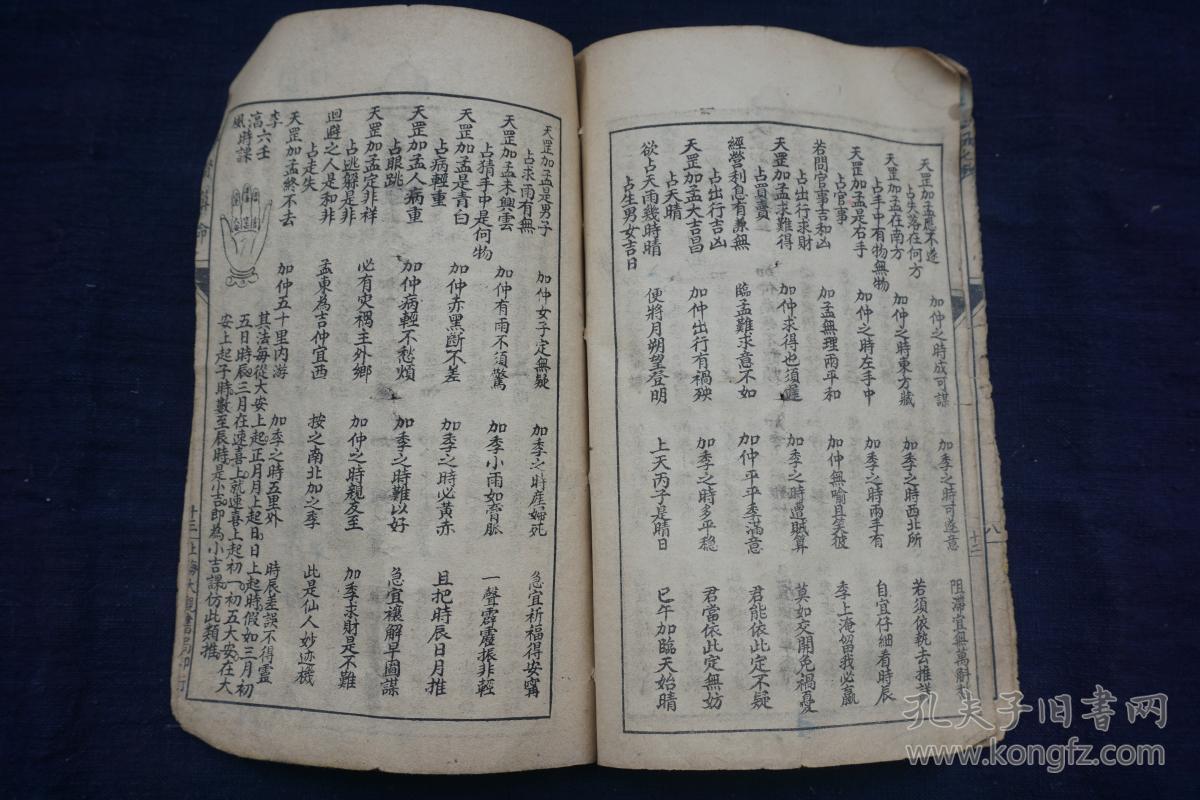 天罡加孟應不遂　加仲之時成可謀　加季之時可遂意　阻滯宜無萬斛
占失落在何方
天罡加孟在南方　加仲之時東方藏　加季之時西北所　若須依執去推詳
占手中有物無物
天罡加孟是右手　加仲之時左手中　加季之時兩手有　自宜仔細看時辰
占官事
若問官事吉和凶　加孟無理兩平和　加仲無喻且笑彼　季上淹留我必贏
占出行求財
天罡加孟求難得　加仲求得也須遲　加季之時遭賊算　莫如交開免禍憂
占買賣
經營利息有兼無　臨孟難求意不如　加仲平平季滿意　君能依此定不疑
占出行吉凶
天罡加孟大吉昌　加仲出行有禍殃　加季之時多平穩　君當依此定無妨
占天晴
欲占天雨幾時晴　便將月朔望登明　上天丙子是晴日　巳午加臨天始晴
占生男女吉日
八
十二
天罡加孟是男子　加仲女子定無疑　加季之時產婦死　急宜祈福得安寧
占求雨有無
天罡加孟未興雲　加仲有雨不須驚　加季小雨如膏脈　一聲霹靂振非輕
占猜手中是何物
天罡加孟是青白　加仲赤黑斷不差　加季之時必黃赤　且把時辰日月推
占病輕重
天罡加孟人病重　加仲病輕不愁煩　加季之時難以好　急宜禳解早圖謀
占眼跳
天罡加孟定非祥　必有災禍主外鄉　加仲之時親友至　加季求財是不難
占逃躲是非
迴避之人是和非　孟東為吉仲宜西　按之南北加之季　此是仙人妙迹機
占走失
天罡加孟終不去　加仲五十里內游　加季之時五里外　時辰差誤不得靈
李淳風六壬時課
其法每從大安上起正月月上起日日上起時假如三月初
五日時辰三月在速喜上就速喜上起初一初五大安在大
安上起子時數至辰時是小吉即為小吉課仿此類推
命
十三
上海大觀書局印行
孔夫子旧书网
www.kongfz.com